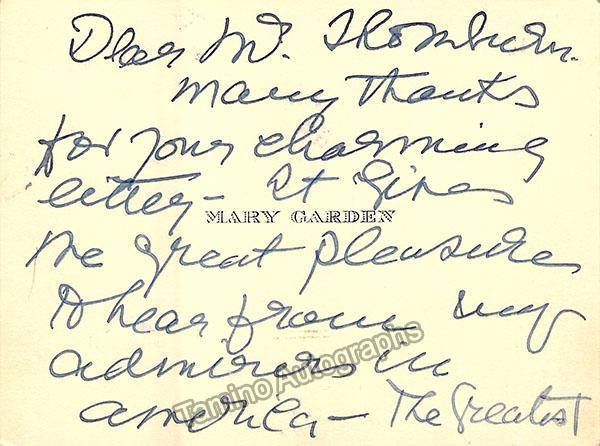 Dear Mr. Thornburn.
Many thanks
for your charming
letter – It gives
MARY GARDEN
me great pleasure
to hear from my
admirers in
america – The Greatest
Tamino Autographs